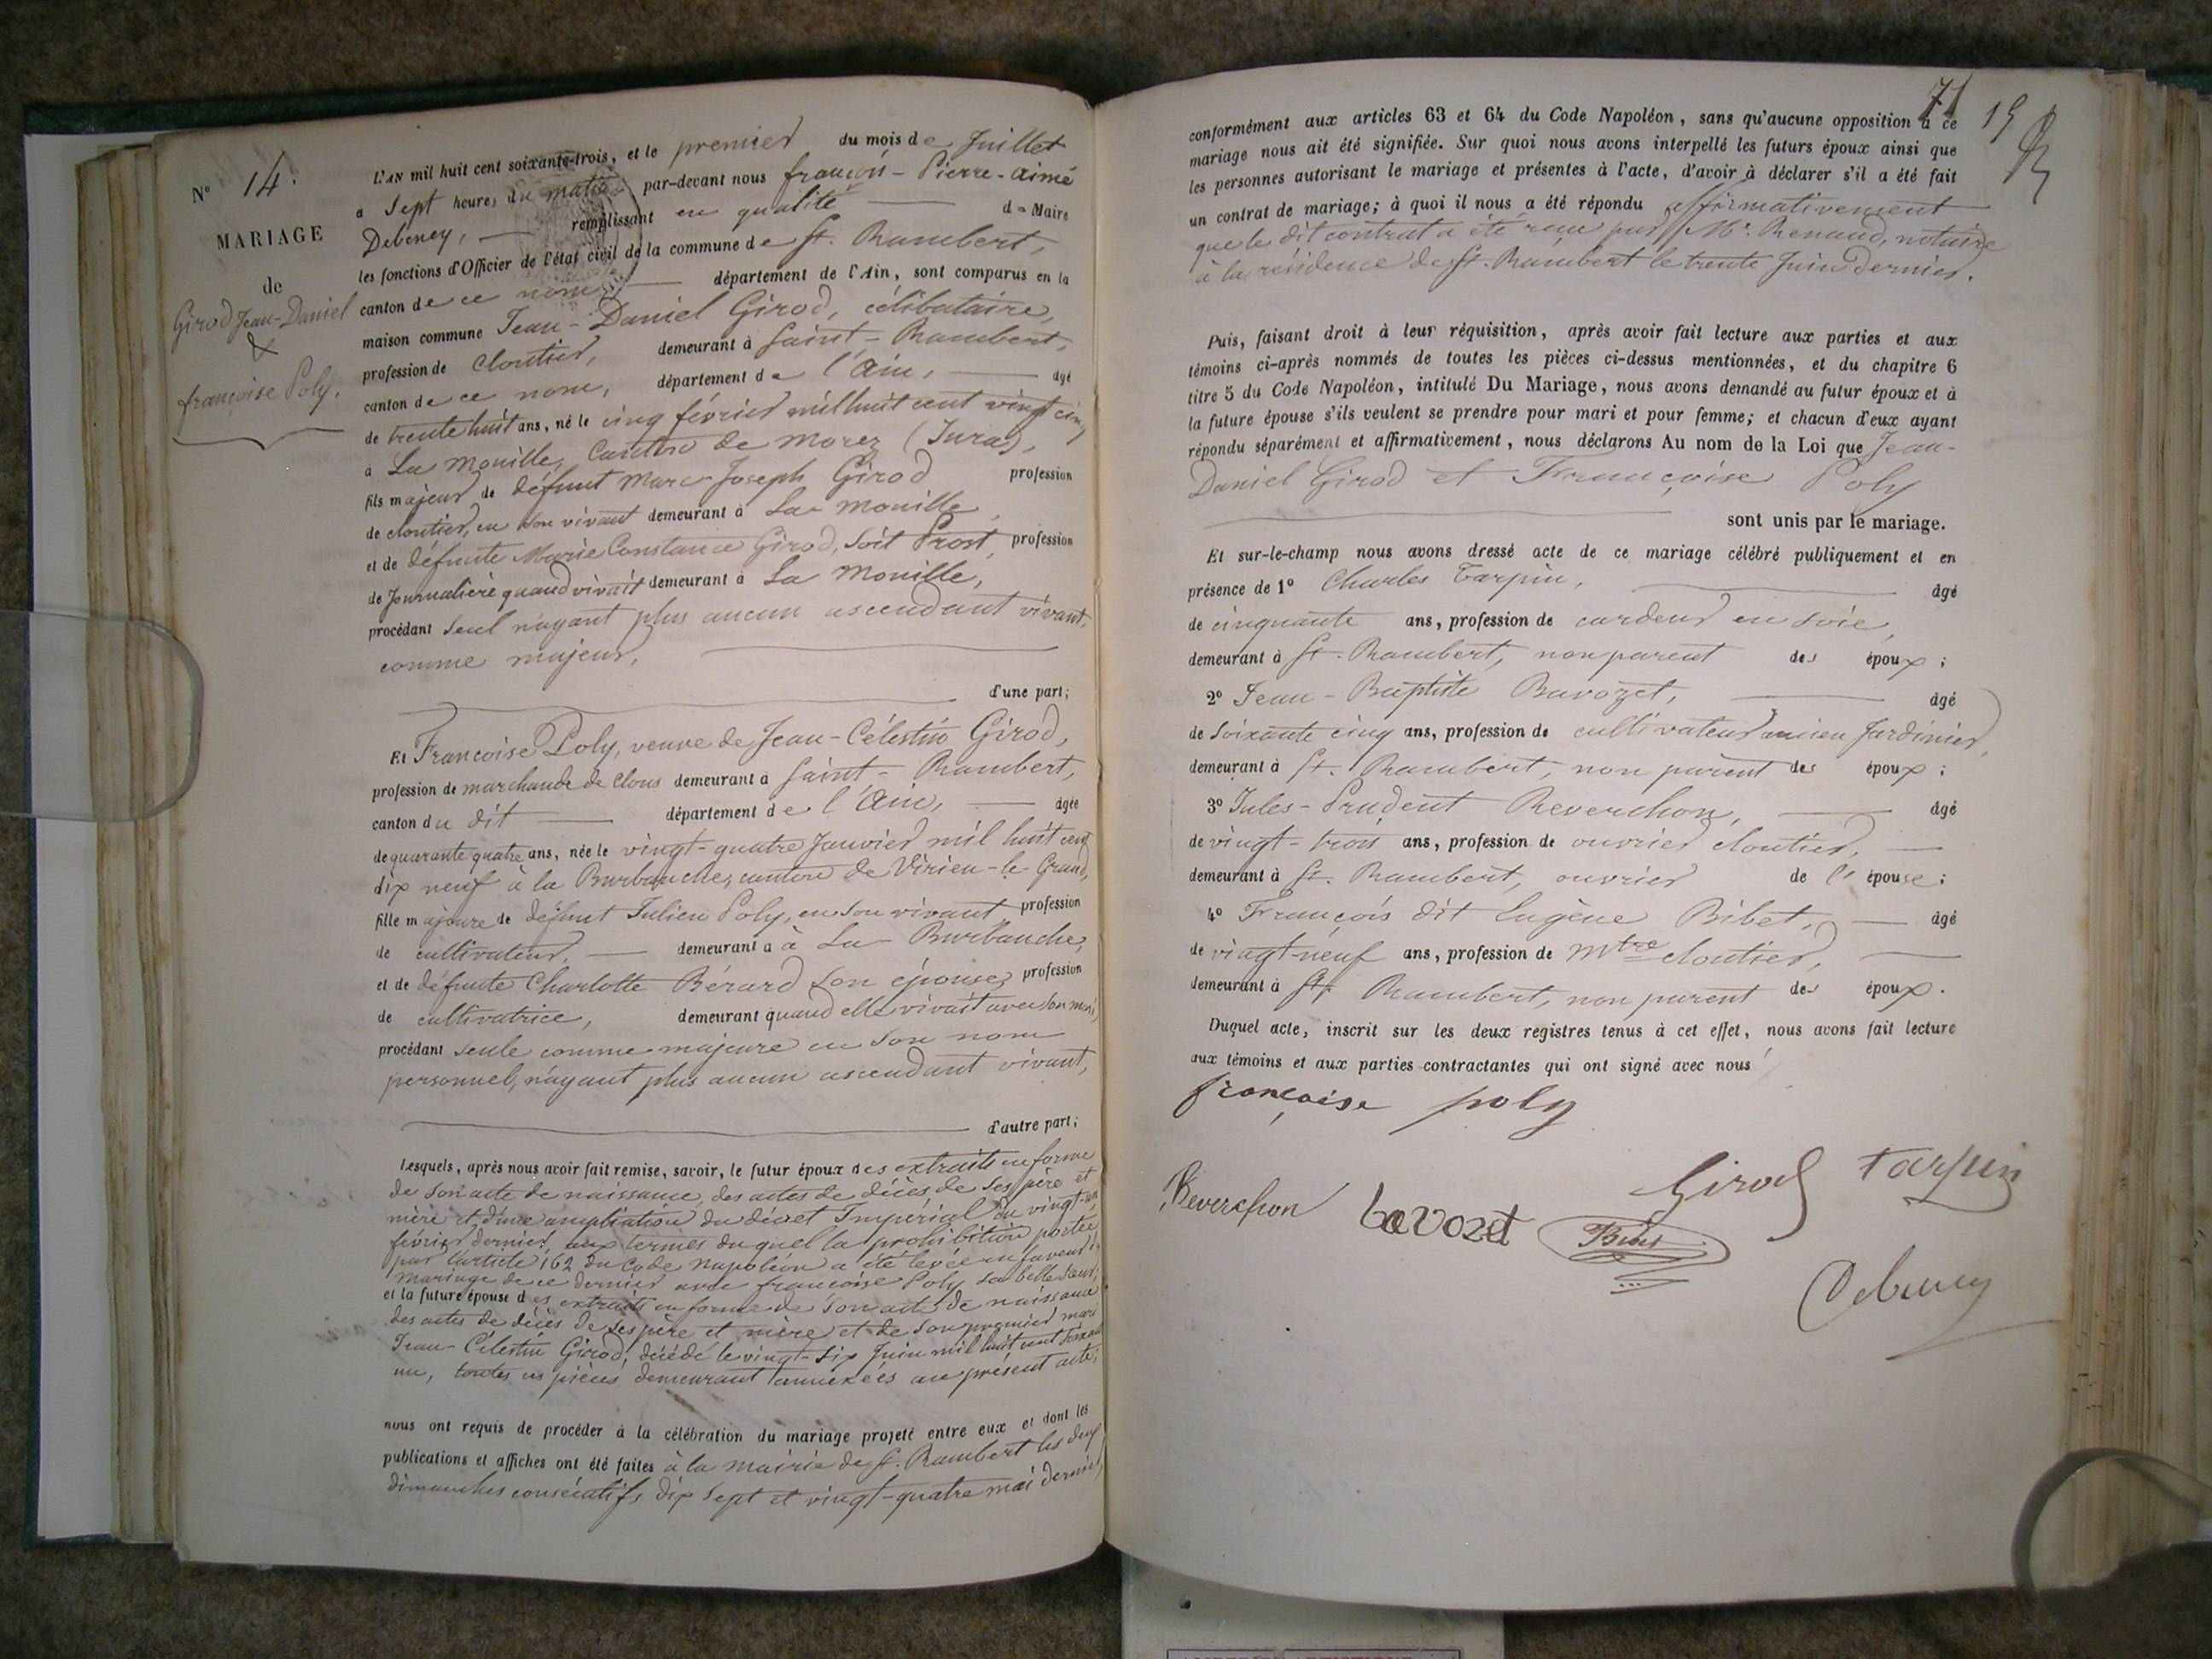 N° 14.
MARIAGE
de
Girod Jean-Daniel
&
françoise Poly.
L'AN mil huit cent soixante-trois, et le premier du mois de Juillet
à Sept heures du matin par-devant nous françois-Pierre-aimé
Debeney, remplissant en qualité de Maire
les fonctions d'Officier de l'état civil de la commune de St. Rambert,
canton de ce nom, département de l'Ain, sont comparus en la
maison commune Jean-Daniel Girod, célibataire,
profession de cloutier, demeurant à Saint-Rambert,
canton de ce nom, département de l'Ain, âgé
de trente huit ans, né le cinq février mil huit cent vingt cinq
à La mouille, Canton de morez (Jura),
fils majeur de défunt Marc-Joseph Girod profession
de cloutier, en son vivant demeurant à La mouille,
et de défunte Marie Constance Girod, soit Prost, profession
de Journalière quand vivait demeurant à La Mouille,
procédant seul n'ayant plus aucun ascendant vivant,
comme majeur,
d'une part;
Et Françoise Poly, veuve de Jean-Célestin Girod,
profession de marchande de clous demeurant à Saint-Rambert,
canton du dit département de l'Ain, âgée
de quarante quatre ans, née le vingt-quatre Janvier mil huit cent
dix neuf à la Burbanche, canton de Virieu-le Grand,
fille majeure de défunt Julien Poly, en son vivant profession
de cultivateur, demeurant à à La Burbanche,
et de défunte Charlotte Bérard son épouse, profession
de cultivatrice, demeurant quand elle vivait avec son mari,
procédant seule comme majeure en son nom
personnel, n'ayant plus aucun ascendant vivant,
d'autre part;
Lesquels, après nous avoir fait remise, savoir, le futur époux des extraits en forme
de son acte de naissance, des actes de décès de ses père et
mère et d'une ampliation du décret Impérial du vingt-un
février dernier, aux termes duquel la prohibition portée
par l'article 162 du Code Napoléon a été levée en faveur
mariage de ce dernier avec françoise Poly sa belle sœur;
et la future épouse des extraits en forme de son acte de naissance
des actes de décès de ses père et mère et de son premier mari
Jean-Célestin Girod, décédé le vingt-six Juin mil huit cent soixante
un, toutes ces pièces demeurant annexées au présent acte;
nous ont requis de procéder à la célébration du mariage projeté entre eux et dont les
publications et affiches ont été faites à la mairie de St. Rambert les deux
dimanches consécutifs dix sept et vingt-quatre mai dernier,
71
15
conformément aux articles 63 et 64 du Code Napoléon, sans qu'aucune opposition à ce
mariage nous ait été signifiée. Sur quoi nous avons interpellé les futurs époux ainsi que
les personnes autorisant le mariage et présentes à l'acte, d'avoir à déclarer s'il a été fait
un contrat de mariage; à quoi il nous a été répondu affirmativement
que le dit contrat a été reçu par Me. Renaud, notaire
à la résidence de St. Rambert le trente Juin dernier.
Puis, faisant droit à leur réquisition, après avoir fait lecture aux parties et aux
témoins ci-après nommés de toutes les pièces ci-dessus mentionnées, et du chapitre 6
titre 5 du Code Napoléon, intitulé Du Mariage, nous avons demandé au futur époux et à
la future épouse s'ils veulent se prendre pour mari et pour femme; et chacun d'eux ayant
répondu séparément et affirmativement, nous déclarons Au nom de la Loi que Jean-
Daniel Girod et Françoise Poly
sont unis par le mariage.
Et sur-le-champ nous avons dressé acte de ce mariage célébré publiquement et en
présence de 1° Charles Tarpin, âgé
de cinquante ans, profession de cardeur en soie,
demeurant à St. Rambert, non parent des époux;
2° Jean-Baptiste Bavozet, âgé
de Soixante cinq ans, profession de cultivateur ancien Jardinier,
demeurant à St. Rambert, non parent des époux;
3° Jules-Prudent Reverchon, âgé
de vingt-trois ans, profession de ouvrier cloutier,
demeurant à St. Rambert, ouvrier de l'épouse;
4° François dit Eugène Bibet, âgé
de vingt-neuf ans, profession de mtre cloutier,
demeurant à St. Rambert, non parent des époux.
Duquel acte, inscrit sur les deux registres tenus à cet effet, nous avons fait lecture
aux témoins et aux parties contractantes qui ont signé avec nous
françoise poly
Girod Tarpin
Reverchon bavozet
Debeney